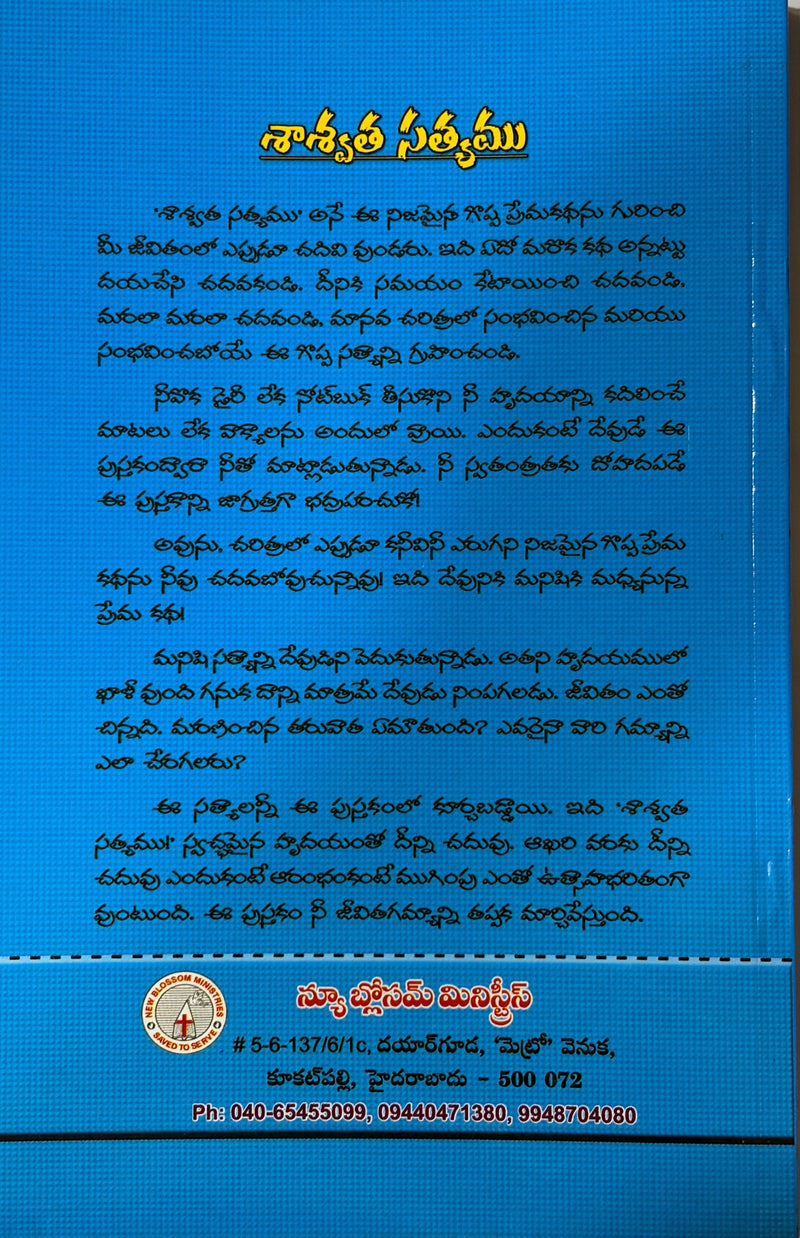 శాశ్వత సత్యము
'శాశ్వత సత్యము' అనే ఈ నిజమైన గొప్ప ప్రేమకథను గురించి
మీ జీవితంలో ఎప్పుడూ చదివి వుండరు. ఇది ఏదో మరొక కథ అన్నట్టు
దయచేసి చదవకండి. దీనికి సమయం కేటాయించి చదవండి.
మరలా మరలా చదవండి. మానవ చరిత్రలో సంభవించిన మరియు
సంభవించబోయే ఈ గొప్ప సత్యాన్ని గ్రహించండి.
నీవొక డైరీ లేక నోట్‌బుక్ తీసుకొని నీ హృదయాన్ని కదిలించే
మాటలు లేక వాక్యాలను అందులో వ్రాయి. ఎందుకంటే దేవుడే ఈ
పుస్తకంద్వారా నీతో మాట్లాడుతున్నాడు. నీ స్వతంత్రతకు దోహదపడే
ఈ పుస్తకాన్ని జాగ్రత్తగా భద్రపరచుకో!
అవును, చరిత్రలో ఎప్పుడూ కనీవినీ ఎరుగని నిజమైన గొప్ప ప్రేమ
కథను నీవు చదవబోవుచున్నావు! ఇది దేవునికి మనిషికి మధ్యనున్న
ప్రేమ కథ!
మనిషి సత్యాన్ని దేవుడిని వెదుకుతున్నాడు. అతని హృదయములో
ఖాళీ వుంది గనుక దాన్ని మాత్రమే దేవుడు నింపగలడు. జీవితం ఎంతో
చిన్నది. మరణించిన తరువాత ఏమౌతుంది? ఎవరైనా వారి గమ్యాన్ని
ఎలా చేరగలరు?
ఈ సత్యాలన్నీ ఈ పుస్తకంలో కూర్చబడ్డాయి. ఇది 'శాశ్వత
సత్యము!' స్వచ్ఛమైన హృదయంతో దీన్ని చదువు. ఆఖరి వరకు దీన్ని
చదువు ఎందుకంటే ఆరంభంకంటే ముగింపు ఎంతో ఉత్సాహభరితంగా
వుంటుంది. ఈ పుస్తకం నీ జీవితగమ్యాన్ని తప్పక మార్చివేస్తుంది.
NEW BLOSSOM MINISTRIES
SAVED TO SERVE
న్యూ బ్లోసమ్ మినిస్ట్రీస్
# 5-6-137/6/1c, దయార్‌గూడ, 'మెట్రో' వెనుక,
కూకట్‌పల్లి, హైదరాబాదు - 500 072
Ph: 040-65455099, 09440471380, 9948704080